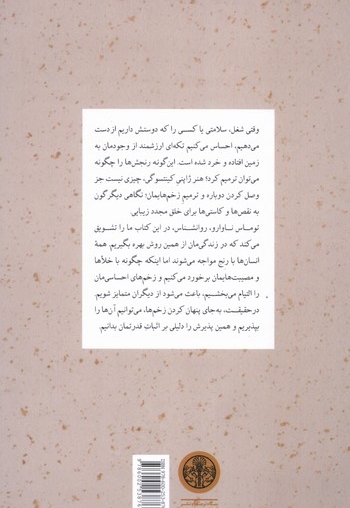 وقتی شغل، سلامتی یا کسی را که دوستش داریم از دست
می‌دهیم، احساس می‌کنیم تکه‌ای ارزشمند از وجودمان به
زمین افتاده و خرد شده است. این‌گونه رنجش‌ها را چگونه
می‌توان ترمیم کرد؟ هنر ژاپنیِ کینتسوگی، چیزی نیست جز
وصل کردن دوباره و ترمیم زخم‌هایمان؛ نگاهی دیگرگون
به نقص‌ها و کاستی‌ها برای خلق مجدد زیبایی.
توماس ناوارو، روانشناس، در این کتاب ما را تشویق
می‌کند که در زندگی‌مان از همین روش بهره بگیریم. همهٔ
انسان‌ها با رنج مواجه می‌شوند اما اینکه چگونه با خلأها
و مصیبت‌هایمان برخورد می‌کنیم و زخم‌های احساسی‌مان
را التیام می‌بخشیم، باعث می‌شود از دیگران متمایز شویم.
درحقیقت، به‌جای پنهان کردن زخم‌ها، می‌توانیم آن‌ها را
بپذیریم و همین پذیرش را دلیلی بر اثبات قدرتمان بدانیم.